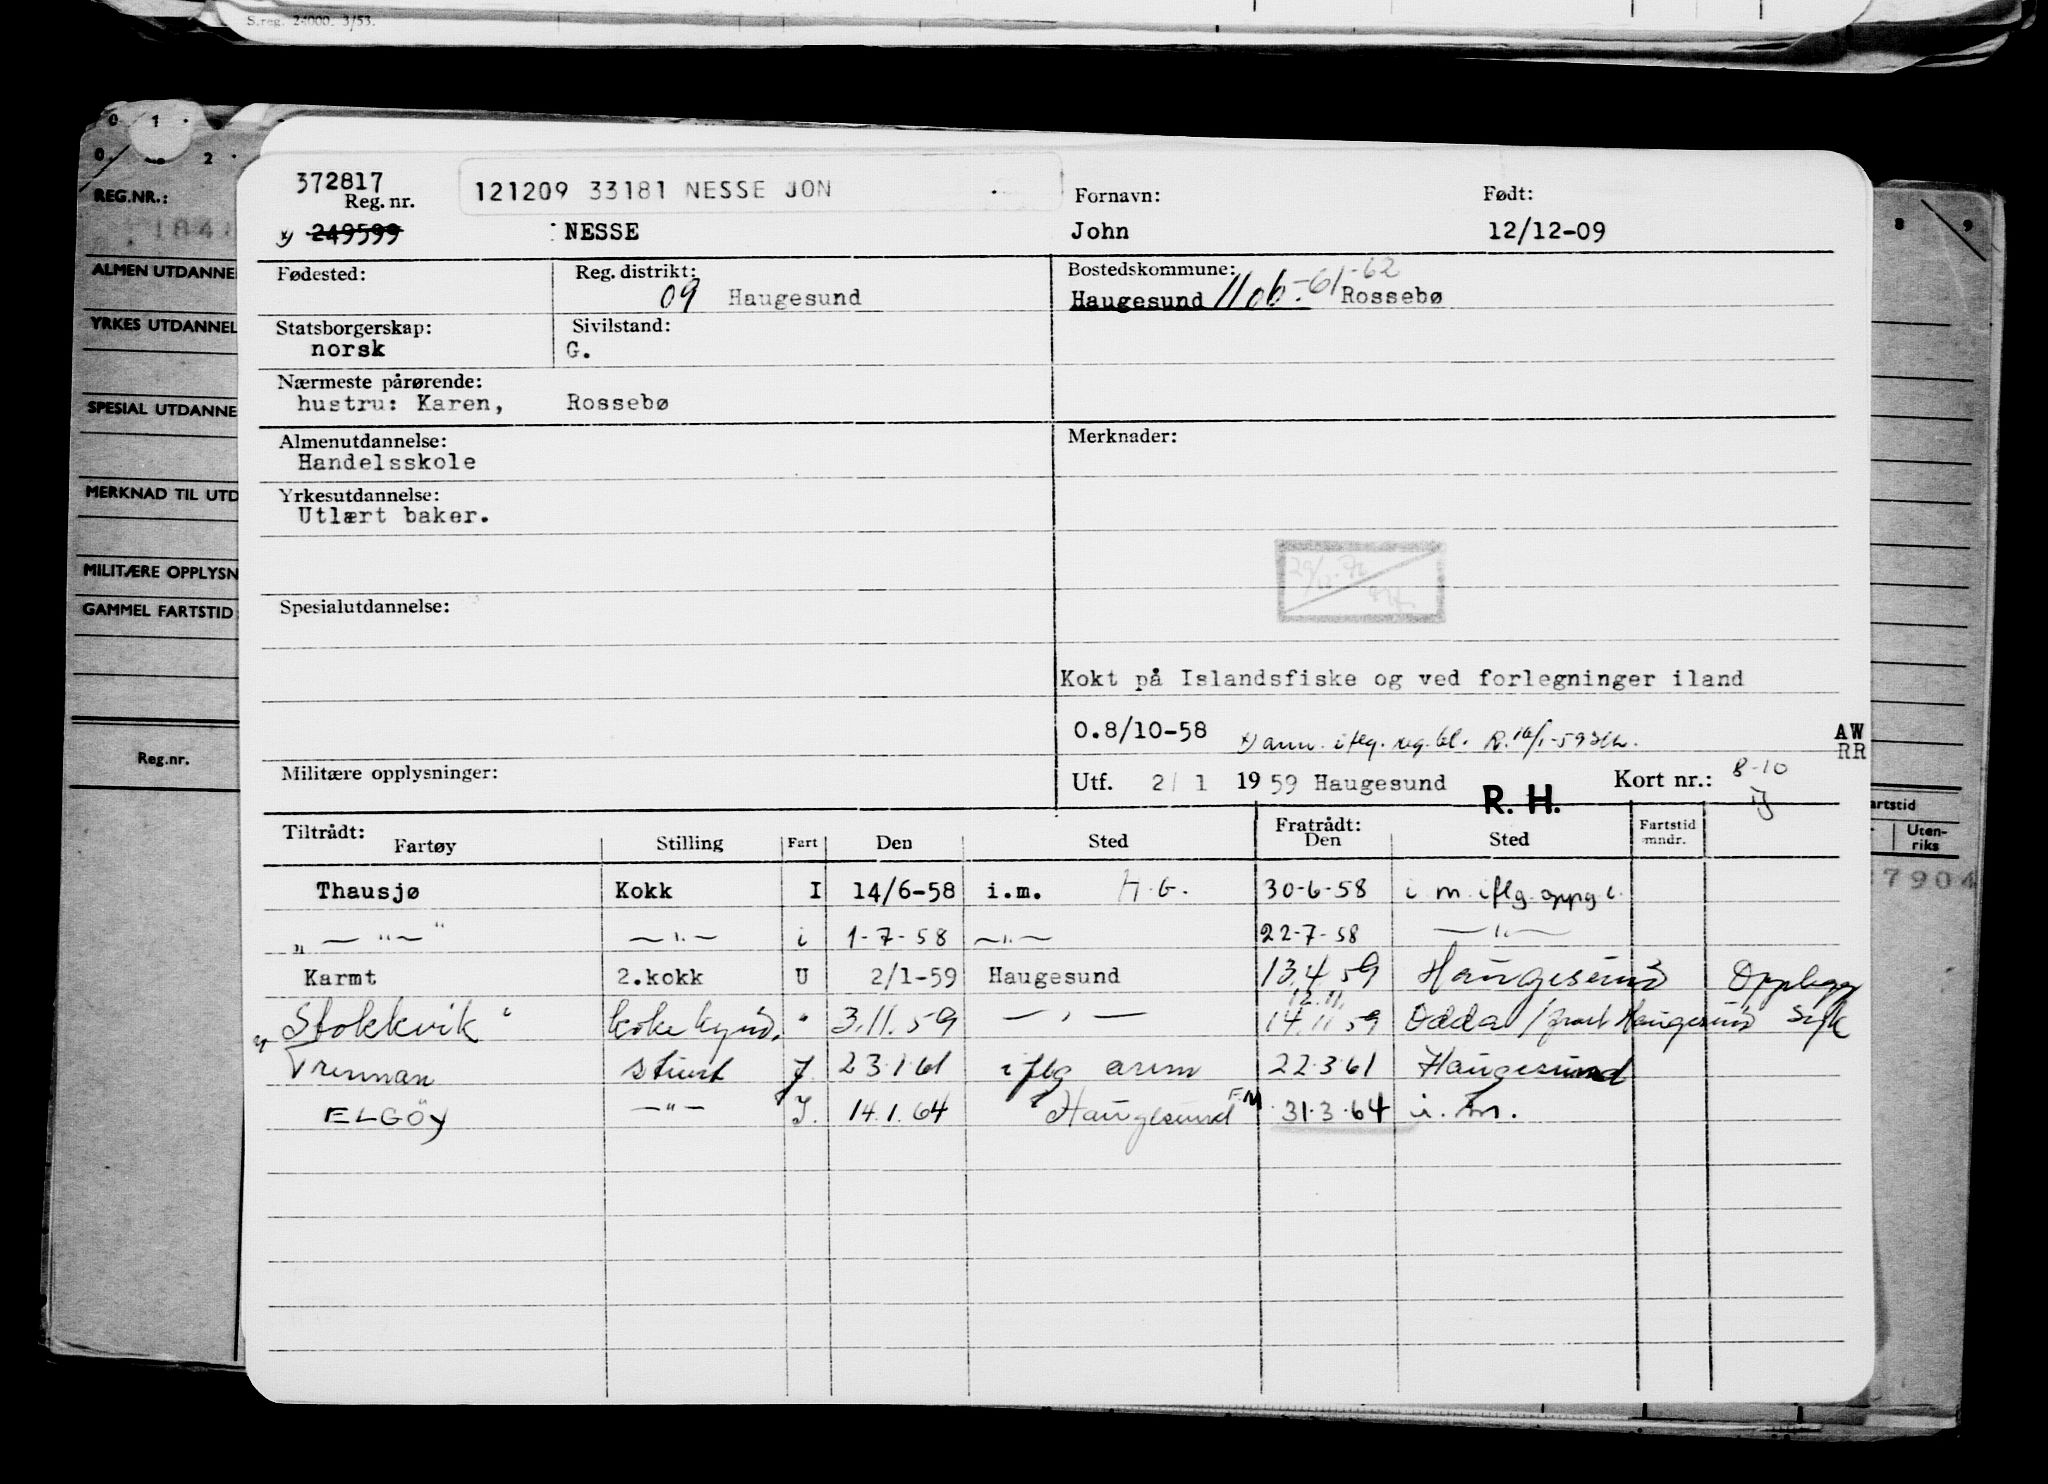 S.reg. 24000. 3/53.
0 1
0 2
8 9
REG.NR.:
ALMEN UTDANNE
YRKES UTDANNEL
SPESIAL UTDANNE
MERKNAD TIL UTD
MILITÆRE OPPLYSN
GAMMEL FARTSTID
Reg.nr.
artstid
Uten-
riks
7904
372817
Reg. nr.
121209 33181 NESSE JON
Fornavn:
Født:
x) 249599
NESSE
John
12/12-09
Fødested:
Reg. distrikt:
09 Haugesund
Bostedskommune:
Haugesund 1106.-61-62 Rossebø
Statsborgerskap:
norsk
Sivilstand:
G.
Nærmeste pårørende:
hustru: Karen, Rossebø
Almenutdannelse:
Handelsskole
Merknader:
Yrkesutdannelse:
Utlært baker.
Spesialutdannelse:
Kokt på Islandsfiske og ved forlegninger iland
0.8/10-58 x) ann. iflg. reg.bl. R. 16/1-59
AW
RR
Militære opplysninger:
Utf. 2/ 1 19 59 Haugesund
R. H.
Kort nr.: 8-10
Tiltrådt:
Fartøy Stilling Fart Den Sted
Fratrådt:
Den Sted
Fartstid
mndr.
Thausjø Kokk I 14/6-58 i.m. H.G. 30-6-58 i m iflg. oppg.
„ — " — " — " — i 1-7-58 — " — 22-7-58 — " —
Karmt 2.kokk U 2/1-59 Haugesund 13.4.59 Haugesund Opplegg
12.11.
Stokkvik " 3.11.59 — " — 14.11.59 Odda / Haugesund Syk
Trennan stuert J 23.1.61 iflg ann 22.3.61 Haugesund
ELGÖY — " — J. 14.1.64 Haugesund F.M 31.3.64 i.m.